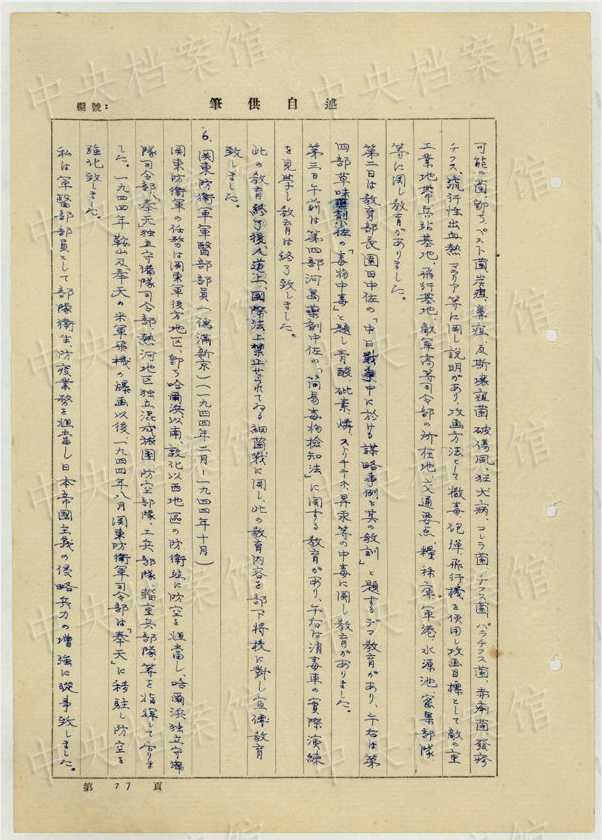 筆供自述
編號：
可能の菌即ちペスト菌炭疽、鼻疽、瓦斯壊疽菌破傷風、狂犬病、コレラ菌チフス菌、パラチフス菌、赤痢菌發疹
チフス、流行性出血熱マラリア等に関し説明があり、攻画方法として撒毒砲弾、飛行機を使用し攻画目標として敵の重
工業地帯兵站基地、飛行基地、敵軍高等司令部の所在地、交通要点、糧秣庫軍港、水源池、密集部隊
等に関し教育がありました。
第二日は教育部長園田中佐の「中日戰爭中に於ける謀略事例と其の教訓」と題するデマ教育があり、午后は第
四部草味藥剤少佐の「毒物中毒」と題し青酸砒素、燐、ストリキニーネ、昇汞等の中毒に関し教育がありました。
第三日午前は第四部河島藥剤中佐の「簡易毒物検知法」に関する教育があり、午后は消毒車の實際演練
を見学し教育は終了致しました。
此の教育終了後人道上、國際法上禁止せられてゐる細菌戰に関し、此の教育内容を部下将校に対し宣傳教育
致しました。
6. 関東防衛軍軍醫部部員（偽滿新京）（一九四四年二月－一九四四年十月）
関東防衛軍の任務は関東軍後方地区即ち哈爾浜以南、敦化以西地區の防衛並に防空を担當し、哈爾浜独立守備
隊司令部、奉天独立守備隊司令部熱河地区独立混成旅團防空部隊、工兵部隊、臨空兵部隊、等を指揮して居りま
した。一九四四年鞍山及「奉天」の米軍飛機の爆画以後、一九四四年八月関東防衛軍司令部は「奉天」に移駐し防空を
強化致しました。
私は軍醫部部員として部隊衛生、防疫業務を担當し日本帝國主義の侵略兵力の増強に從事致しました。
第 77 頁
中央档案馆